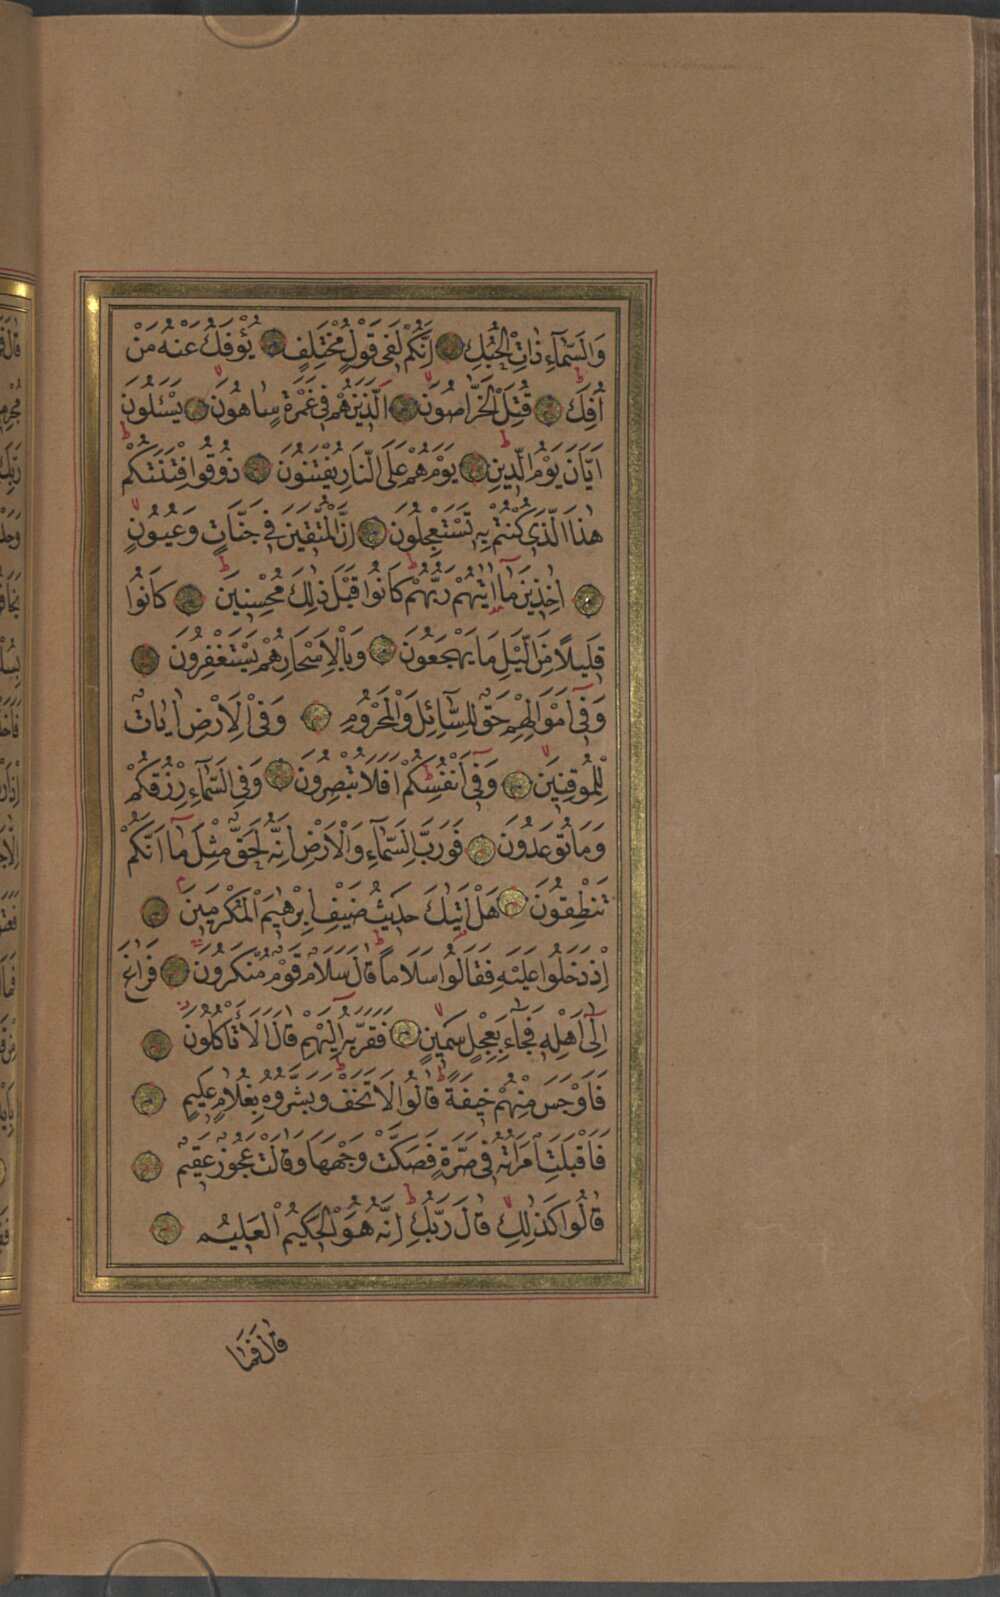 وَالسَّمَاءِ ذَاتِ الْحُبُكِ اِنَّكُمْ لَفِى قَوْلٍ مُخْتَلِفٍ يُؤْفَكُ عَنْهُ مَنْ
اُفِكَ قُتِلَ الْخَرَّاصُونَ اَلَّذِينَ هُمْ فِى غَمْرَةٍ سَاهُونَ يَسْئَلُونَ
اَيَّانَ يَوْمُ الدِّينِ يَوْمَ هُمْ عَلَى النَّارِ يُفْتَنُونَ ذُوقُوا فِتْنَتَكُمْ
هٰذَا الَّذِى كُنْتُمْ بِهِ تَسْتَعْجِلُونَ اِنَّ الْمُتَّقِينَ فِى جَنَّاتٍ وَعُيُونٍ
اٰخِذِينَ مَا اٰتٰيهُمْ رَبُّهُمْ كَانُوا قَبْلَ ذٰلِكَ مُحْسِنِينَ كَانُوا
قَلِيلًا مِنَ الَّيْلِ مَا يَهْجَعُونَ وَبِالْاَسْحَارِ هُمْ يَسْتَغْفِرُونَ
وَفِى اَمْوَالِهِمْ حَقٌّ لِلسَّائِلِ وَالْمَحْرُومِ وَفِى الْاَرْضِ اٰيَاتٌ
لِلْمُوقِنِينَ وَفِى اَنْفُسِكُمْ اَفَلَا تُبْصِرُونَ وَفِى السَّمَاءِ رِزْقُكُمْ
وَمَا تُوعَدُونَ فَوَرَبِّ السَّمَاءِ وَالْاَرْضِ اِنَّهُ لَحَقٌّ مِثْلَ مَا اَنَّكُمْ
تَنْطِقُونَ هَلْ اَتٰيكَ حَدِيثُ ضَيْفِ اِبْرٰهِيمَ الْمُكْرَمِينَ
اِذْ دَخَلُوا عَلَيْهِ فَقَالُوا سَلَامًا قَالَ سَلَامٌ قَوْمٌ مُنْكَرُونَ فَرَاغَ
اِلٰى اَهْلِهِ فَجَاءَ بِعِجْلٍ سَمِينٍ فَقَرَّبَهُ اِلَيْهِمْ قَالَ اَلَا تَأْكُلُونَ
فَاَوْجَسَ مِنْهُمْ خِيفَةً قَالُوا لَا تَخَفْ وَبَشَّرُوهُ بِغُلَامٍ عَلِيمٍ
فَاَقْبَلَتِ امْرَاَتُهُ فِى صَرَّةٍ فَصَكَّتْ وَجْهَهَا وَقَالَتْ عَجُوزٌ عَقِيمٌ
قَالُوا كَذٰلِكِ قَالَ رَبُّكِ اِنَّهُ هُوَ الْحَكِيمُ الْعَلِيمُ
قَالَ فَمَا